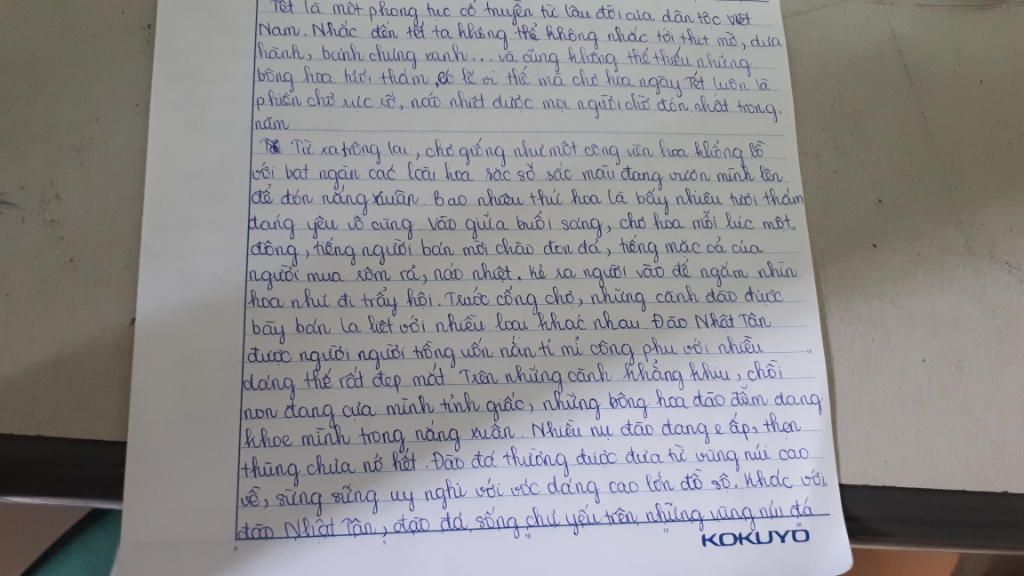 Tết là một phong tục cổ truyền từ lâu đời của dân tộc Việt
Nam. Nhắc đến tết ta không thể không nhắc tới thịt mỡ, dưa
hành, bánh chưng xanh... và cũng không thể thiếu những
bông hoa tươi thắm, có lẽ vì thế mà chợ hoa ngày Tết luôn là
phiên chợ rực rỡ, náo nhiệt được mọi người chờ đón nhất trong
năm
Từ xa trông lại, chợ giống như một công viên hoa khổng lồ
với bạt ngàn các loài hoa sặc sỡ sắc màu đang vươn mình lên
để đón nắng xuân. Bao nhiêu thứ hoa là bấy nhiêu tươi thắm
đáng yêu vô cùng. Vào giữa buổi sáng, chợ hoa mỗi lúc một
đông, tiếng người bán mời chào đon đả, tiếng mặc cả của
người mua rôm rả, náo nhiệt, kẻ ra người vào để ngắm nhìn
hoa như đi trẩy hội. Trước cổng chợ, những cành đào được
bày bán la liệt với nhiều loại khác nhau. Đào Nhật Tân
được người người trồng uốn nắn tỉ mỉ công phu với nhiều
dáng thế rất đẹp mắt. Trên những cành khẳng khiu, chồi
non đang cựa mình tỉnh giấc, những bông hoa đào đằm đang
khoe mình trong nắng xuân. Nhiều nụ đào đang e ấp, thẹn
thùng chưa nở hết. Đào đá thường được đưa từ vùng núi cao
về, sừng sững uy nghi với vóc dáng cao lớn đồ sộ. Khác với
đào Nhật Tân, đào đá sống chủ yếu trên những vùng núi đá
KOKUYO